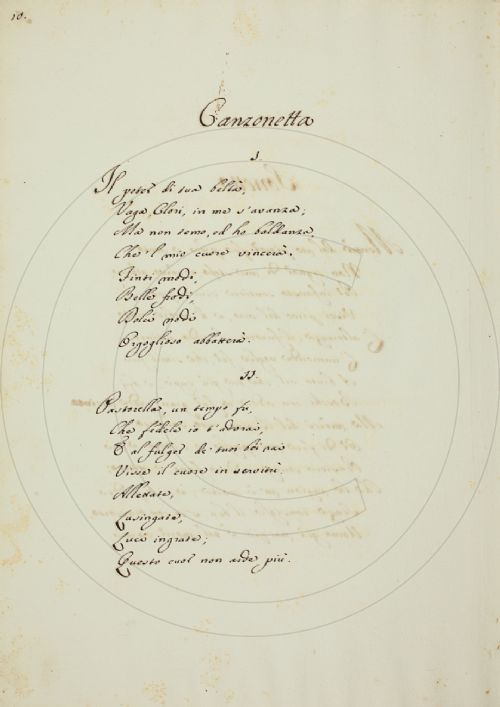 10.
Canzonetta
I.
Il poter di tua beltà,
Vaga Clori, in me s'avanza;
Ma non temo, ed ho baldanza
Che 'l mio cuore vincerà.
Finti modi,
Belle frodi,
Dolci nodi
Orgoglioso abbatterà.
II.
Pastorella, un tempo fù,
Che fedele io t'adorai,
E al fulgor de' tuoi bei rai
Visse il cuore in servitù.
Allettate,
Lusingate,
Luci ingrate;
Questo cuor non arde più.